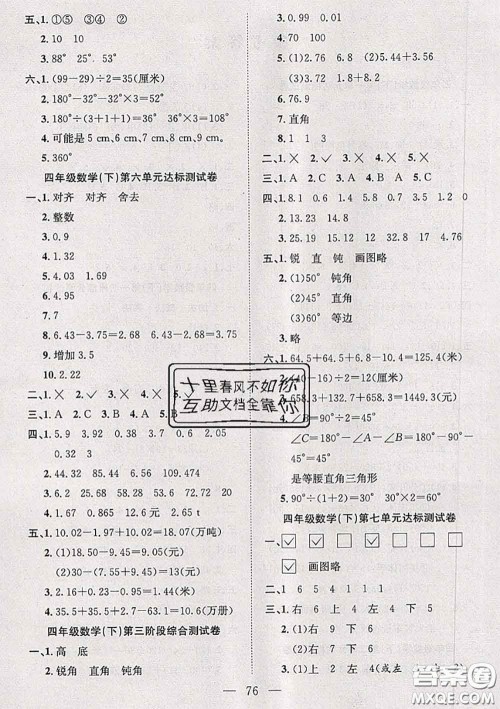 五、1.①⑤ ③④ ②
2.10 10
3.88° 25° 35°
六、1.(99-29)÷2=35(厘米)
2.180°-32°-32°×3=52°
3.180°÷(1+3+1)=36° 36°×3=108°
4.可能是5 cm、6 cm、7 cm、8 cm、9 cm。
5.360°
四年级数学(下)第六单元达标测试卷
一、1.对齐 对齐 舍去
2.整数
3.0.9
4.1.38
5.4.03 1.69
6.4.95
7.9
8.6.43-3.75=2.68 6.43-2.68=3.75
9.增加3.5
10.2.22
二、1.× 2.√ 3.× 4.× 5.√
三、1.A 2.C 3.B
四、1.5.9 3.7 7.6 0.4 0.7
2.44.15 18.67 10.48
3.2.6 23.68 28.53 2.68 27
4.12 0.5 10.9 6
五、1.10.02-1.97+10.02=18.07(万吨)
2.(1)18.50-9.45=9.05(元)
(2)30-(9.45+13.55)=7(元)
3.18.02+2.8=20.82(元)
4.35.5+35.5-2.7+33.8=102.1(万册)
四年级数学(下)第三阶段综合测试卷
一、1.高 底
2.锐角 直角 钝角
3.0.99 9.01
4.90°
5.(1)2.6+4.2-1.8=5
(2)13.4-1.8+4.2=15.8
6.76.9
7.直角
8.1 1 3
二、1.× 2.× 3.× 4.√ 5.×
三、1.C 2.A 3.C 4.A 5.B
四、1.8.18 0.6 1.4 5.8 0.5 1.4
2.13.8 12.91 14.6
3.25.19 12.15 32 17.8 4.76
五、1.锐 直 钝 画图略
2.(1)50° 钝角
(2)45° 直角
(3)60° 等边
3.略
六、1.64.5+64.5+100.4=229.4(米)
2.(40-16)÷2=12(厘米)
4.∠B=90°÷2=45°
∠C=180°-∠A-∠B=180°-90°-
45°=45°
是等腰直角三角形
5.90°÷(1+2)=30° 30°×2=60°
四年级数学(下)第七单元达标测试卷
画图略
2.1 6 5 4 1 1 1
三、1.右 6 上 4 左 4 下 5
2.(1)右 9 下 6
(2)右 7 下 6
3.(1)上 2 左 4
76
十里春风不如你
互助文档全靠你
答案圈
MXQE.COM